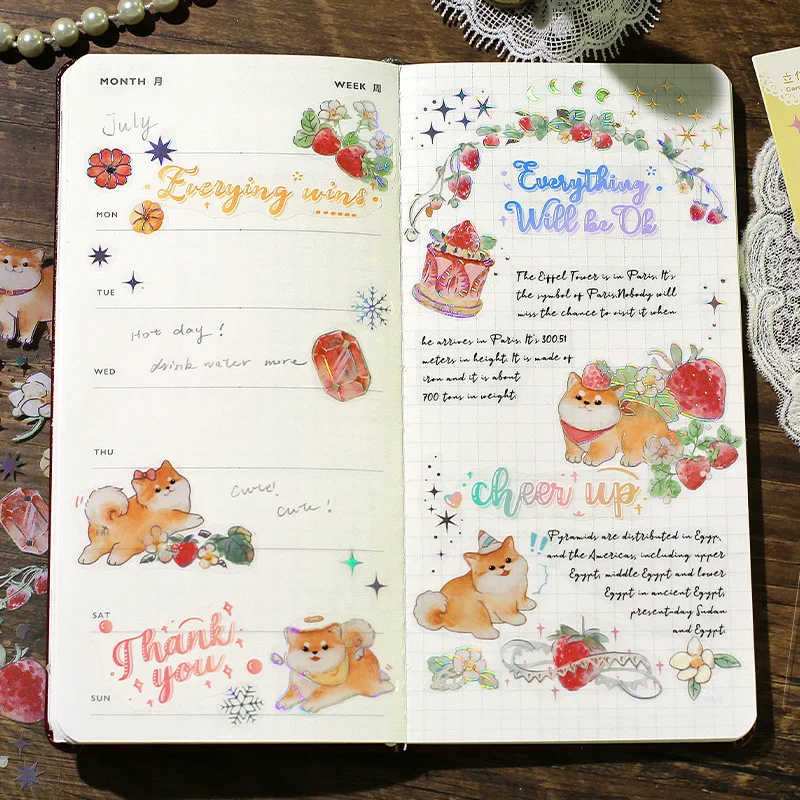 MONTH 月
WEEK 周
July
Everying wins
MON
TUE
Hot day!
drink water more
WED
THU
cure!
cure!
SAT
Thank
you
SUN
Everything
Will be Ok
The Eiffel Tower is in Paris. It's
the symbol of Paris.Nobody will
miss the chance to visit it when
he arrives in Paris. It's 300.51
meters in height. It is made of
iron and it is about
700 tons in weight.
cheer up
!!
Pyramids are distributed in Egyp,
and the Americas, including upper
Egypt, middle Egypt and lower
Egypt in ancient Egypt,
present-day Sudan
and Egypt.